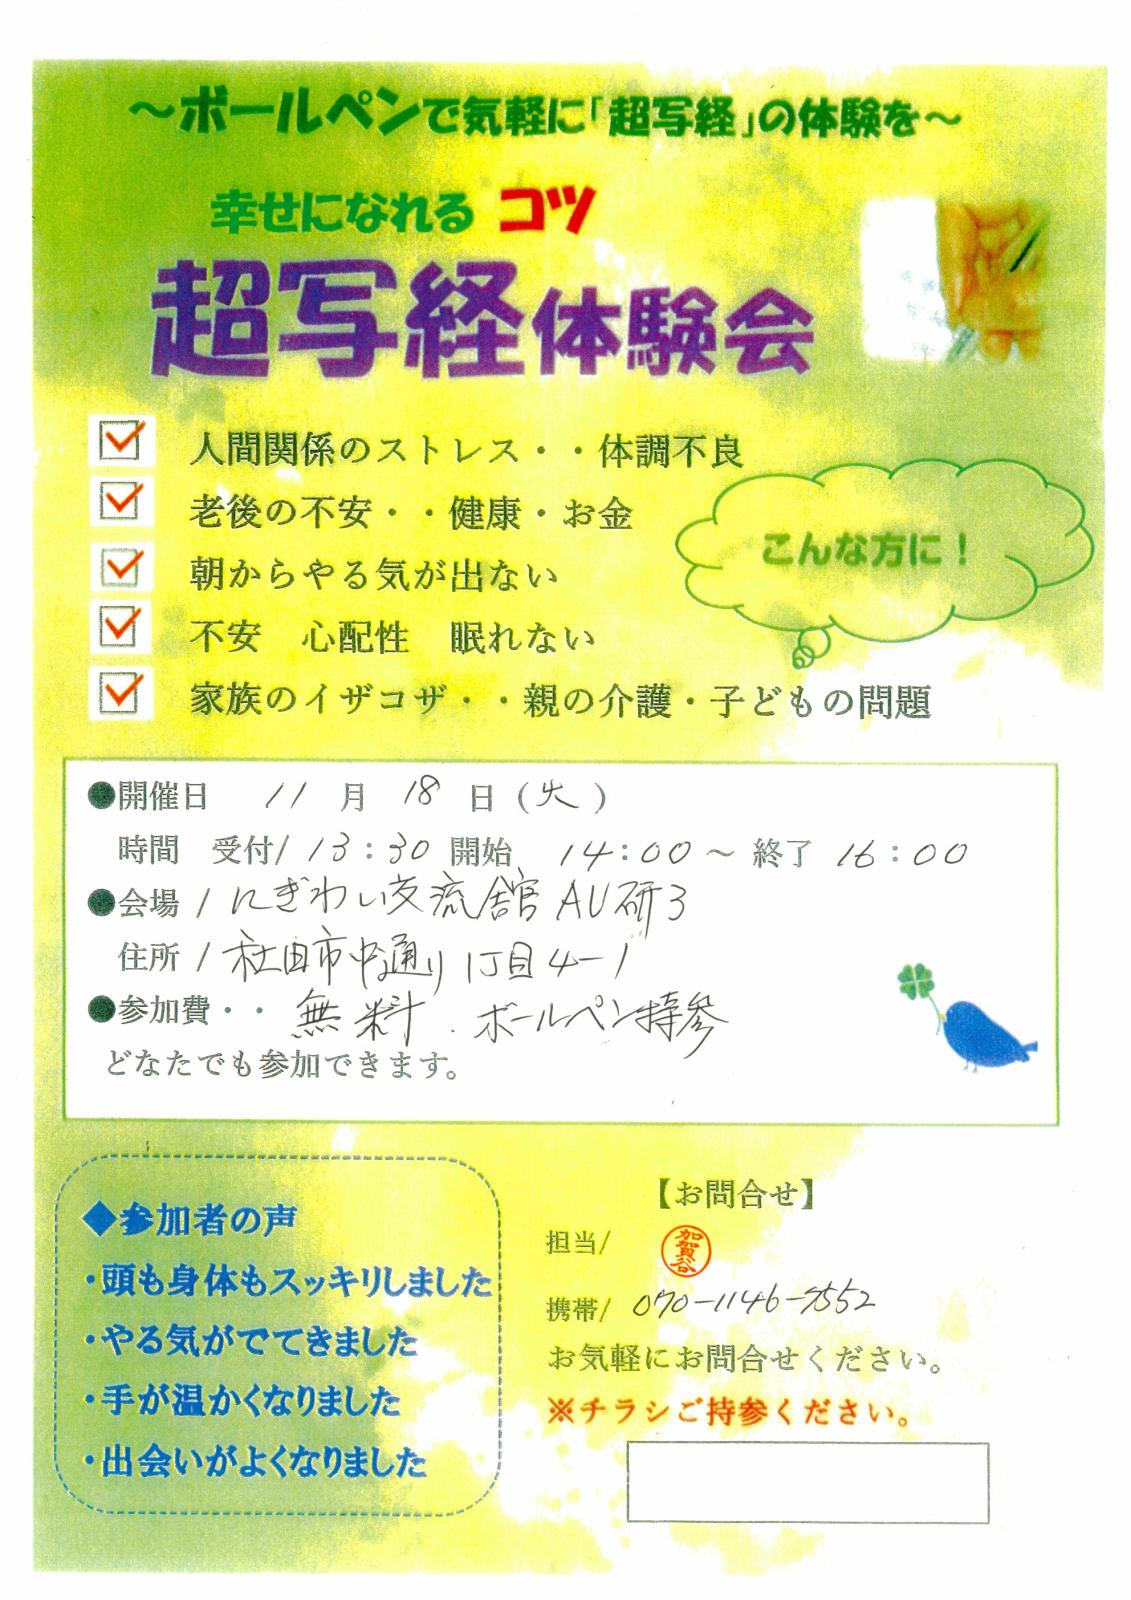 ～ボールペンで気軽に「超写経」の体験を～
幸せになれる コツ
超写経体験会
人間関係のストレス・・体調不良
老後の不安・・健康・お金
朝からやる気が出ない
不安 心配性 眠れない
家族のイザコザ・・親の介護・子どもの問題
こんな方に！
●開催日 11月18日(火)
時間 受付/13:30 開始 14:00～終了 16:00
●会場/にぎわい交流館 AU研3
住所/秋田市中通り1丁目4-1
●参加費・・無料．ボールペン持参
どなたでも参加できます。
◆参加者の声
・頭も身体もスッキリしました
・やる気がでてきました
・手が温かくなりました
・出会いがよくなりました
【お問合せ】
担当/ 加賀谷
携帯/ 070-1146-7552
お気軽にお問合せください。
※チラシご持参ください。